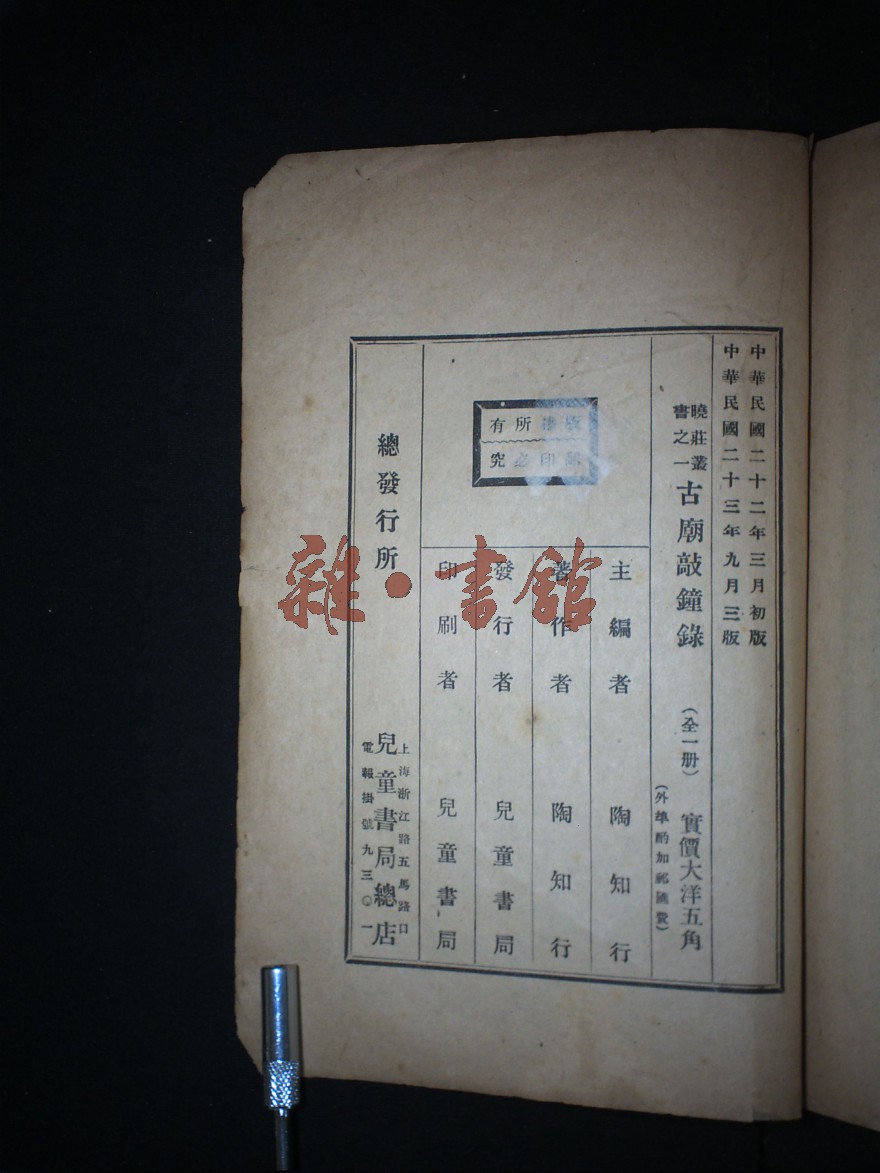 中華民國二十二年三月初版
中華民國二十三年九月三版
曉莊叢
書之一
古廟敲鐘錄
（全一册）
實價大洋五角
（外埠酌加郵匯費）
主編者 陶知行
著作者 陶知行
發行者 兒童書局
印刷者 兒童書局
版權所有
翻印必究
總發行所
上海浙江路五馬路口
兒童書局總店
電報掛號九三〇一
雜·書館